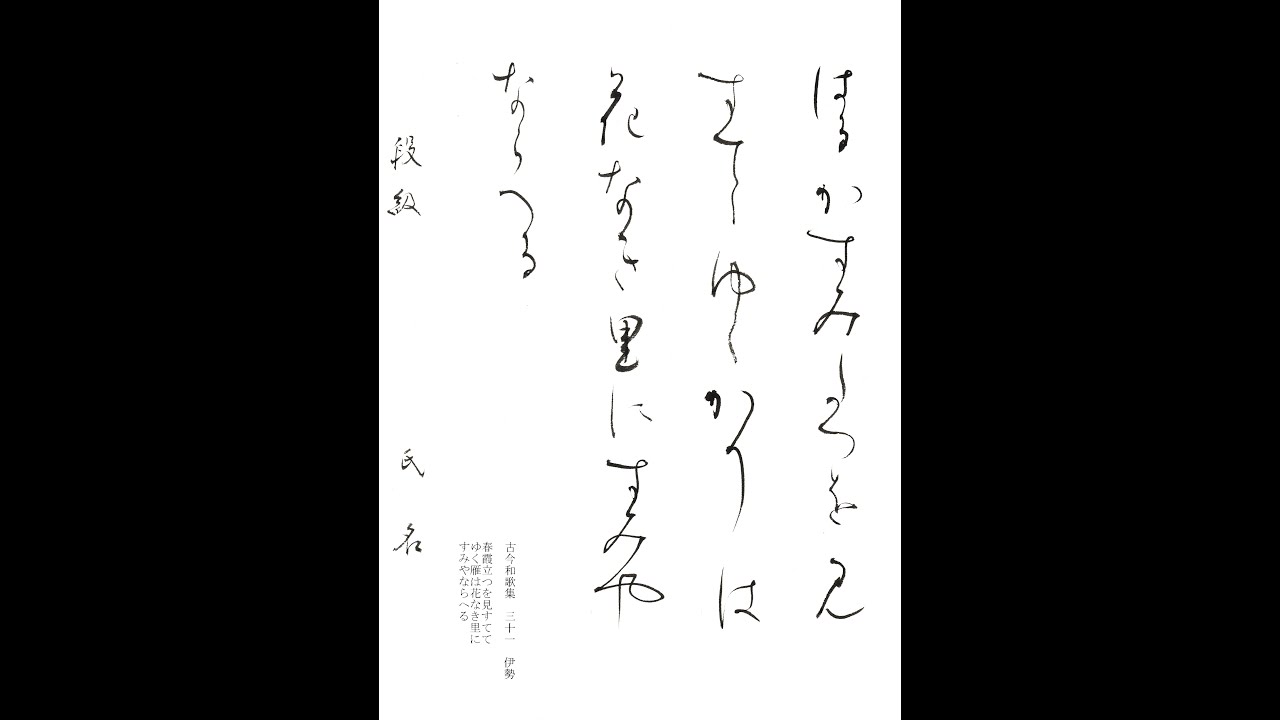 はるかすみたつを見
すてゝゆくかりは
花なき里にすみや
ならへる
古今和歌集 三十一 伊勢
春霞立つを見すてて
ゆく雁は花なき里に
すみやならへる
段級 氏名